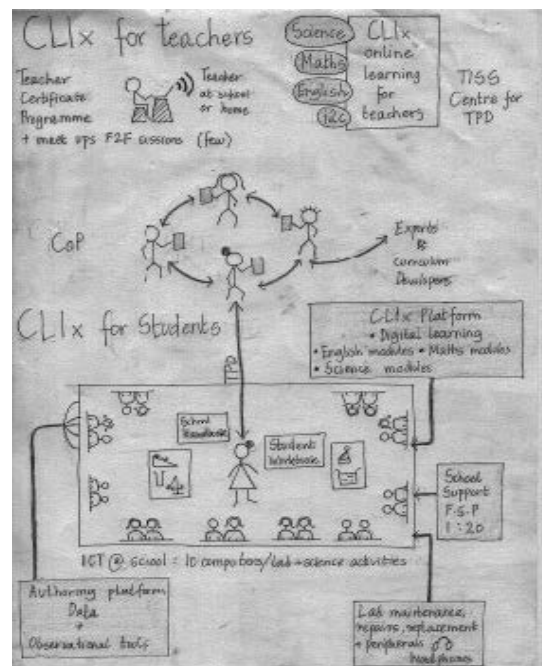 CLIx for teachers
Teacher
Certificate
Programme
+ meet ups F2F sessions (few)
Teacher
at school
or home
Science
Maths
English
i2c
CLIx
online
learning
for
teachers
TISS
Centre for
TPD
CoP
Experts
&
curriculum
Developers
CLIx for Students
CLIx Platform
• Digital learning
• English modules • Maths modules
• Science modules
TPD
School
Student
Workbook
School
Support
F.S.P
1:20
ICT @ school = 10 computers/lab + science activities
Authoring platform
Data
+
Observational tools
Lab maintenance,
repairs, replacement
+ peripherals
Headphones